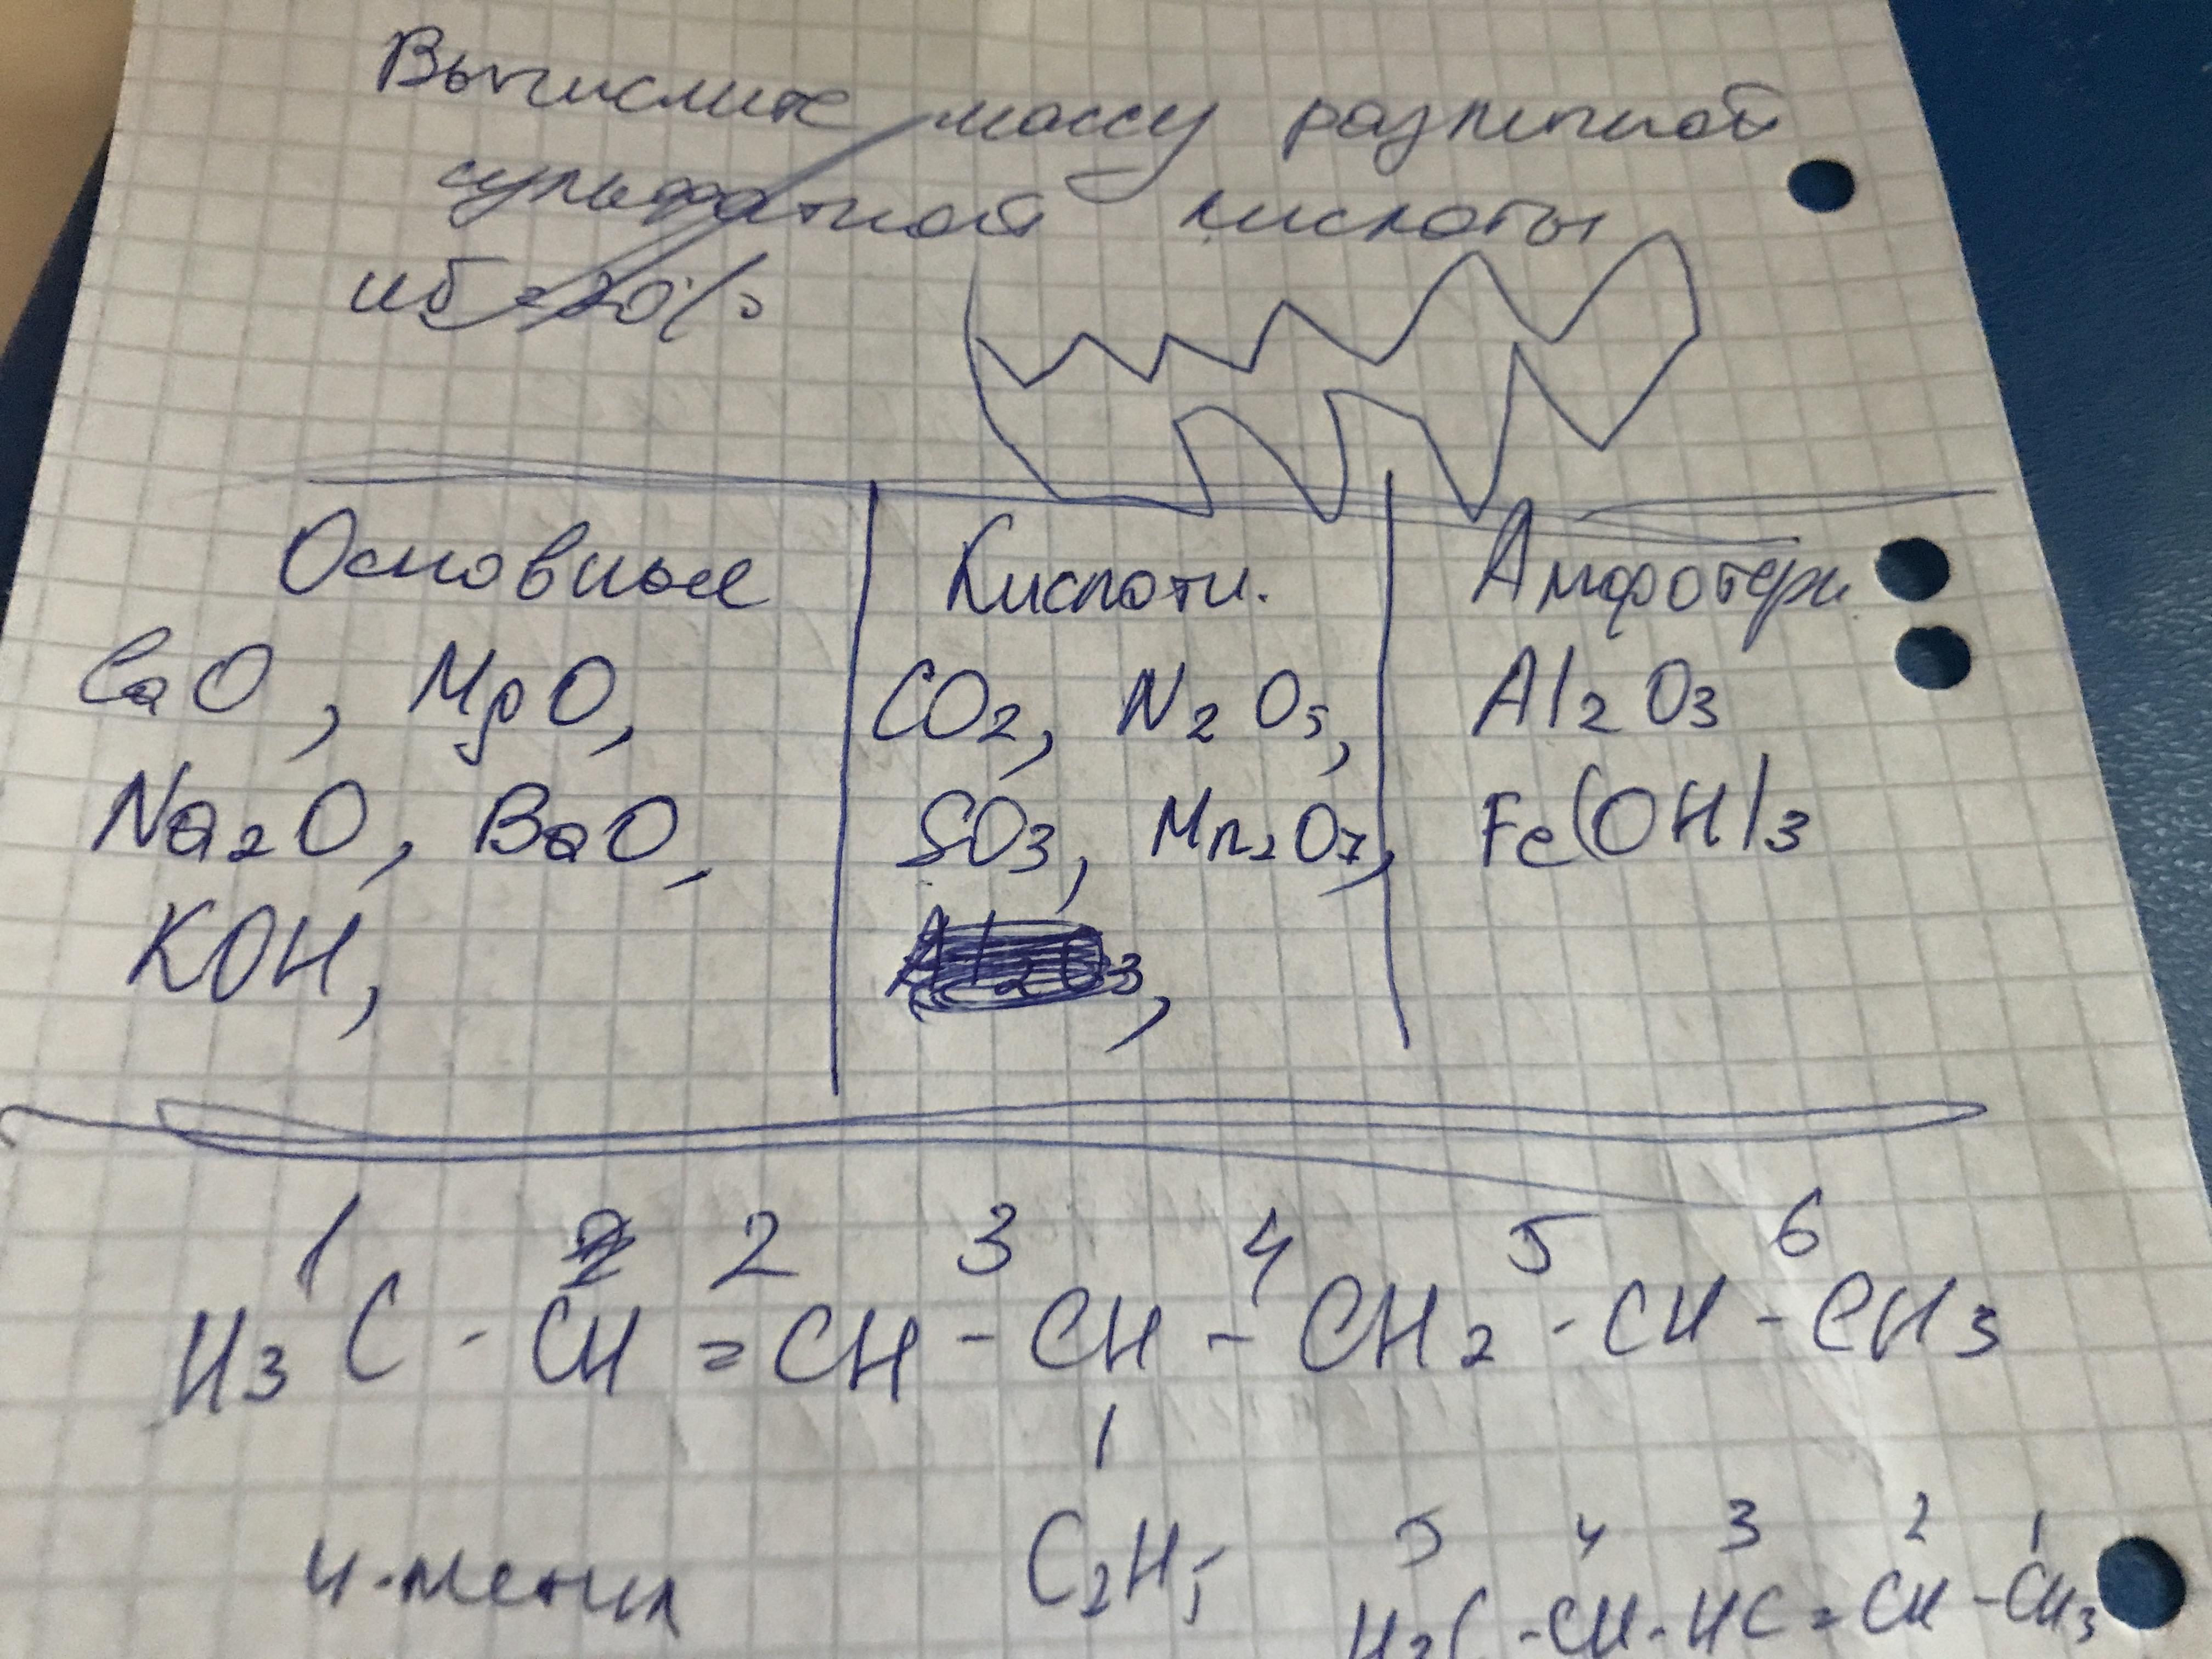 Вычислите массу различной
сульфатной кислоты
из 20%
Основные Кислотн. Амфотерн
CaO, MgO, CO2, N2O5, Al2O3
Na2O, BaO, SO3, Mn2O7, Fe(OH)3
KOH, Al2O3,
1 2 2 3 4 5 6
H3C - CH = CH - CH - CH2 - CH - CH3
C2H5
4-метил
5 4 3 2 1
H3C - CH - HC = CH - CH3